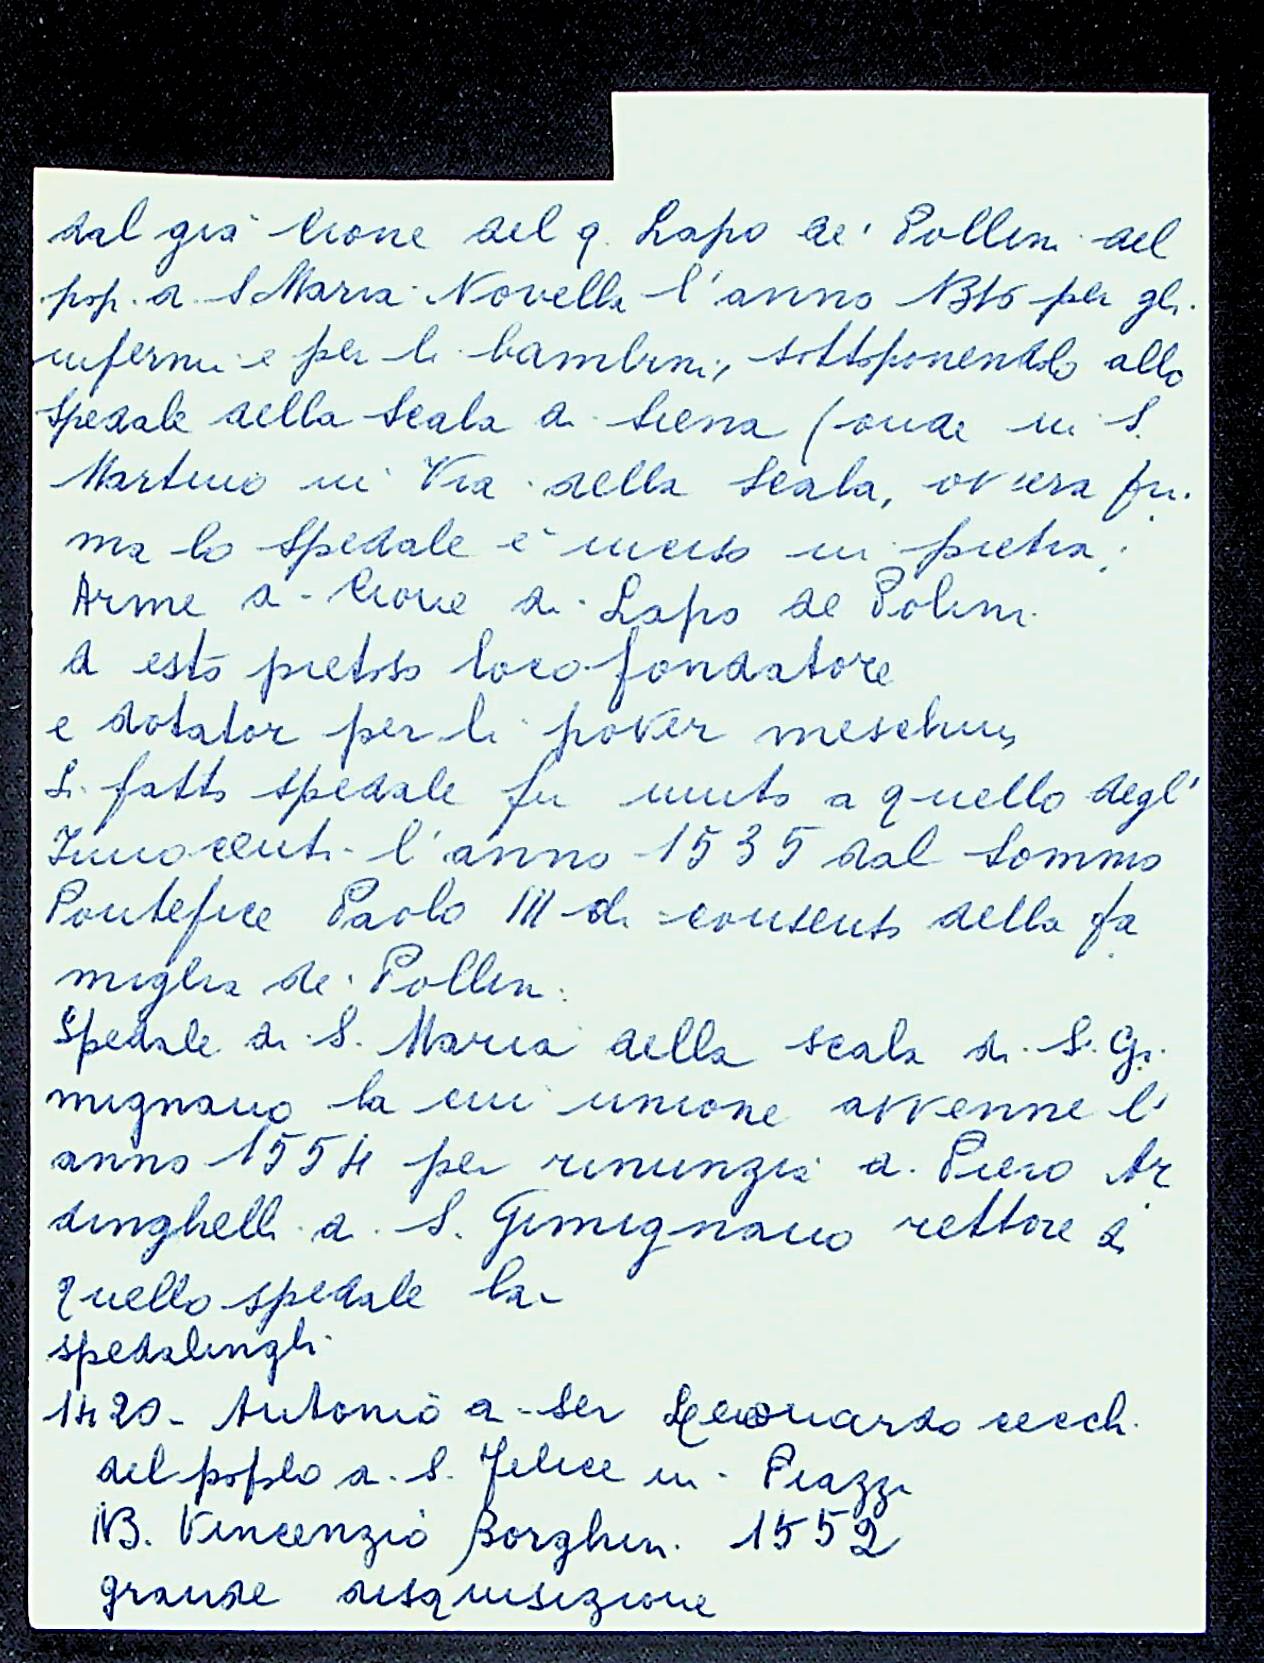 dal già Cione del q. Lapo de' Pollini del
pop. di S Maria Novella l'anno 1316 per gli
infermi e per li bambini, sottoponendolo allo
Spedale della Scala di Siena (onde in S.
Martino in Via della Scala, ov'era pri
ma lo spedale è inciso in pietra:
Arme di Cione di Lapo de Polini
di esto pietoso loco fondatore
e dotator per li pover meschini
Sì fatto spedale fu unito a quello degl'
Innocenti l'anno 1535 dal Sommo
Pontefice Paolo III di consenso della fa
miglia de' Pollini.
Spedale di S. Maria della Scala di S. Gi
mignano la cui unione avvenne l'
anno 1554 per rinunzia di Piero Ar
dinghelli di S. Gimignano rettore di
quello spedale
spedalinghi
1420 - Antonio di Ser Leonardo Cecchi
del popolo di S. Felice in Piazza
NB. Vincenzio Borghini 1552
grande disquisizione